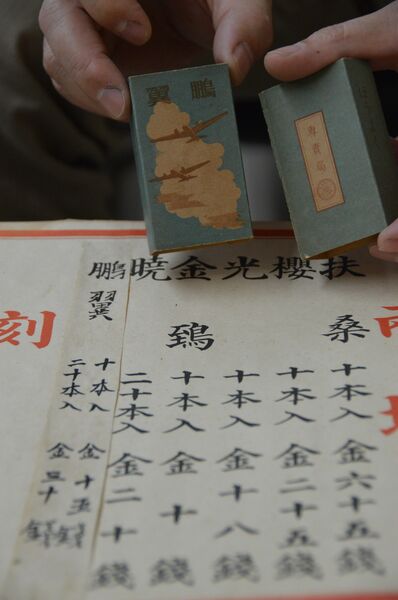 鵬翼
專賣局
扶桑 十本入 金六十五錢
櫻 十本入 金二十五錢
光 十本入 金十八錢
金鵄 十本入 金十錢
曉 二十本入 金二十錢
鵬翼 十本入 金十五錢
二十本入 金三十錢
刻